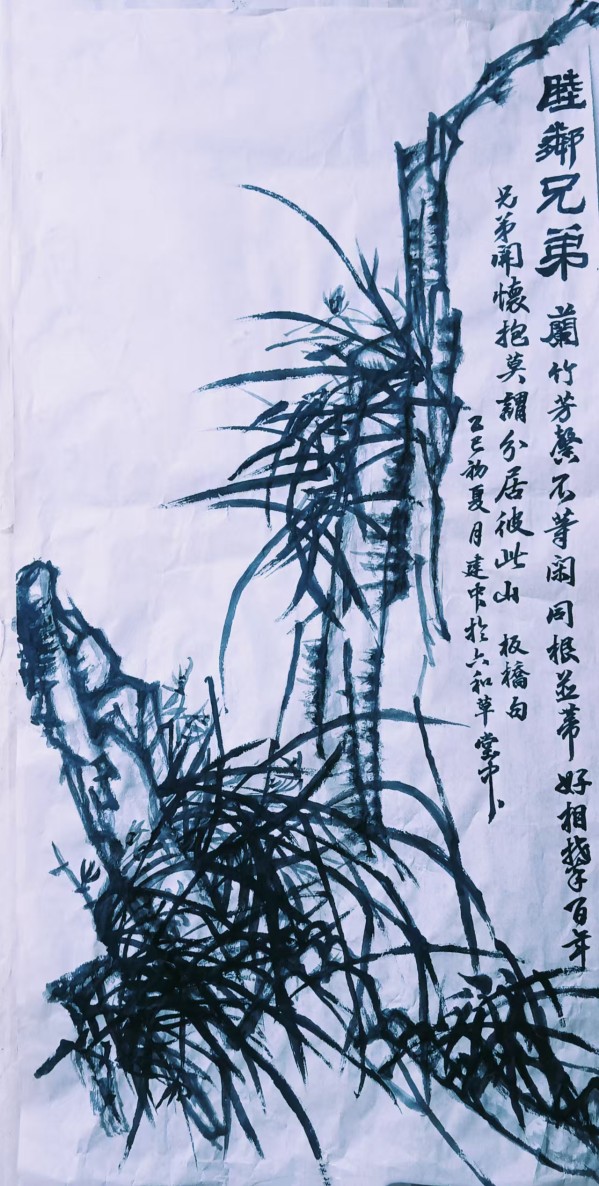 睦鄰兄弟 蘭竹芳馨不等闲同根並蒂好相攀百年
兄弟開懷抱莫謂分居彼此山 板橋句
乙巳初夏月建中於六和草堂中